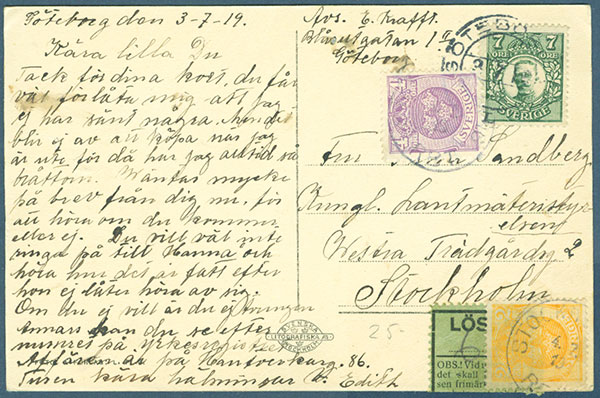 Göteborg den 3-7-19.
Kära lilla Du
Tack för dina kort, du får
väl förlåta mig att jag
ej har sänt några. Men det
blir ej av att köpa när jag
är ute för då har jag alltid så
bråttom. Väntar mycket
på brev från dig nu, för
att höra om du kommer
eller ej. Du vill väl inte
ringa på till Hanna och
höra hur det är fatt efter
hon ej låter höra av sig.
Om du ej vill är du ej tvungen
Annars kan du se efter
numret på yrkesregistret
Affären är på Hantverkarg. 86.
kära hälsningar Edith
Avs. E. Krafft.
Göteborg.
7 7
ÖRE ÖRE
SVERIGE
Sandberg.
Kungl. Lantmäteristyr
elsen
Westra Trädgårdsg 2
Stockholm
25-
SVENSKA
LITOGRAFISKA A.B.
LÖS
OBS! Vid
det skall
sen frimär